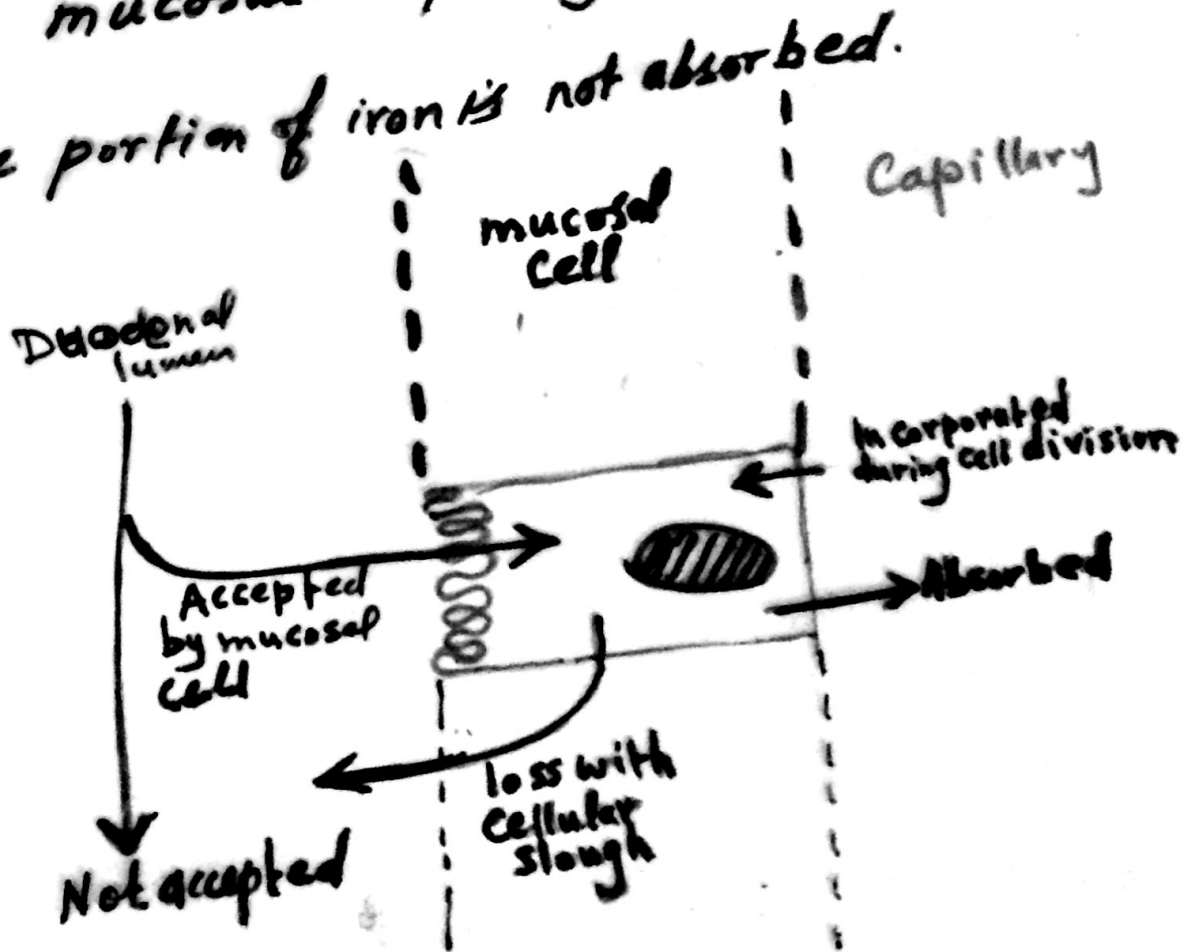 portion of iron is not absorbed.
Capillary
mucosal
Cell
Duodenal
lumen
Incorporated
during cell division
Accepted
by mucosal
cell
Absorbed
loss with
cellular
slough
Not accepted